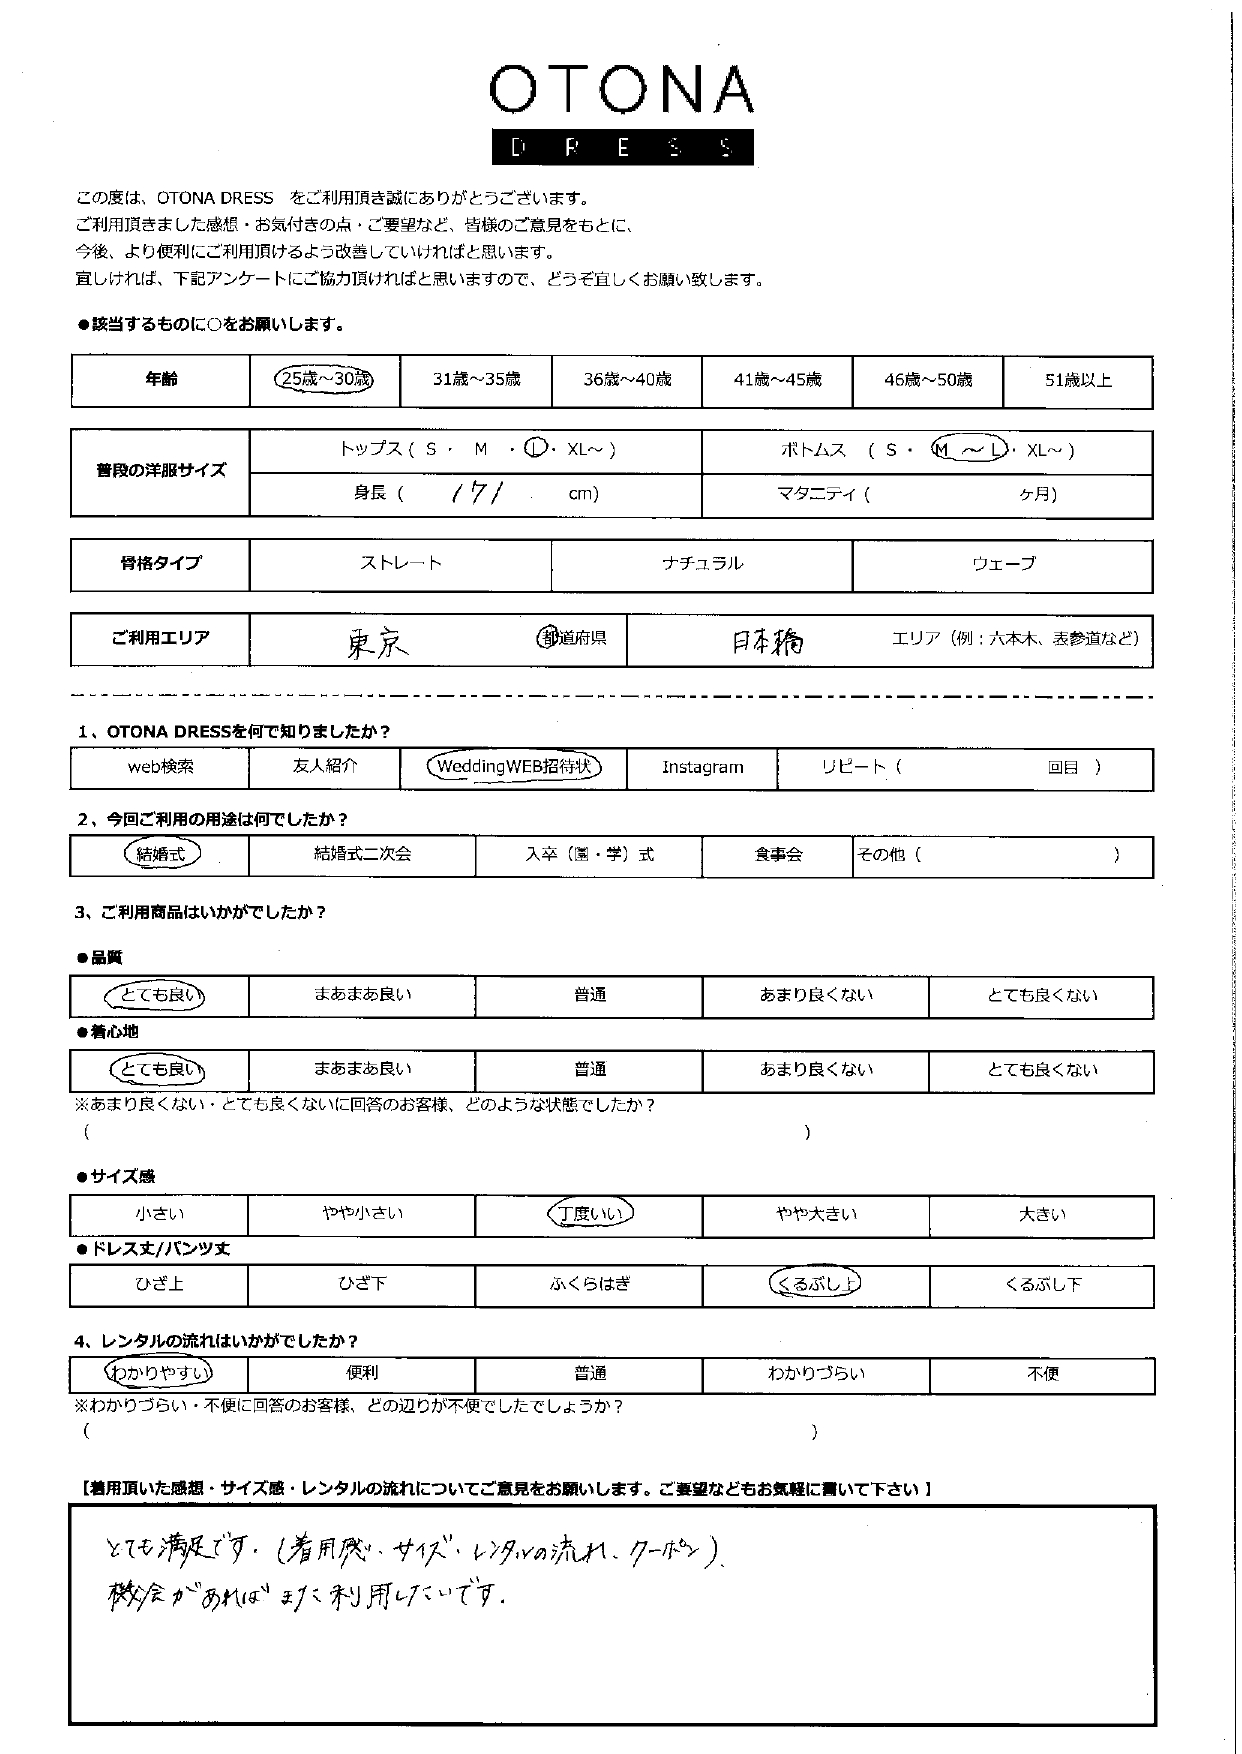 OTONA
DRESS
この度は、OTONA DRESS をご利用頂き誠にありがとうございます。
ご利用頂きました感想・お気付きの点・ご要望など、皆様のご意見をもとに、
今後、より便利にご利用頂けるよう改善していければと思います。
宜しければ、下記アンケートにご協力頂ければと思いますので、どうぞ宜しくお願い致します。
●該当するものに○をお願いします。
年齢 25歳～30歳 31歳～35歳 36歳～40歳 41歳～45歳 46歳～50歳 51歳以上
普段の洋服サイズ トップス ( S ・ M ・ L ・ XL～ ) ボトムス ( S ・ M ～ L ・ XL～ )
身長 ( 171 cm) マタニティ ( ケ月)
骨格タイプ ストレート ナチュラル ウェーブ
ご利用エリア 東京 都道府県 日本橋 エリア（例：六本木、表参道など）
1、OTONA DRESSを何で知りましたか？
web検索 友人紹介 WeddingWEB招待状 Instagram リピート ( 回目 )
2、今回ご利用の用途は何でしたか？
結婚式 結婚式二次会 入卒（園・学）式 食事会 その他 ( )
3、ご利用商品はいかがでしたか？
●品質
とても良い まあまあ良い 普通 あまり良くない とても良くない
●着心地
とても良い まあまあ良い 普通 あまり良くない とても良くない
※あまり良くない・とても良くないに回答のお客様、どのような状態でしたか？
( )
●サイズ感
小さい やや小さい 丁度いい やや大きい 大きい
●ドレス丈/パンツ丈
ひざ上 ひざ下 ふくらはぎ くるぶし上 くるぶし下
4、レンタルの流れはいかがでしたか？
わかりやすい 便利 普通 わかりづらい 不便
※わかりづらい・不便に回答のお客様、どの辺りが不便でしたでしょうか？
( )
【着用頂いた感想・サイズ感・レンタルの流れについてご意見をお願いします。ご要望などもお気軽に書いて下さい】
とても満足です。(着用感、サイズ、レンタルの流れ、クーポン)。
機会があればまた利用したいです。